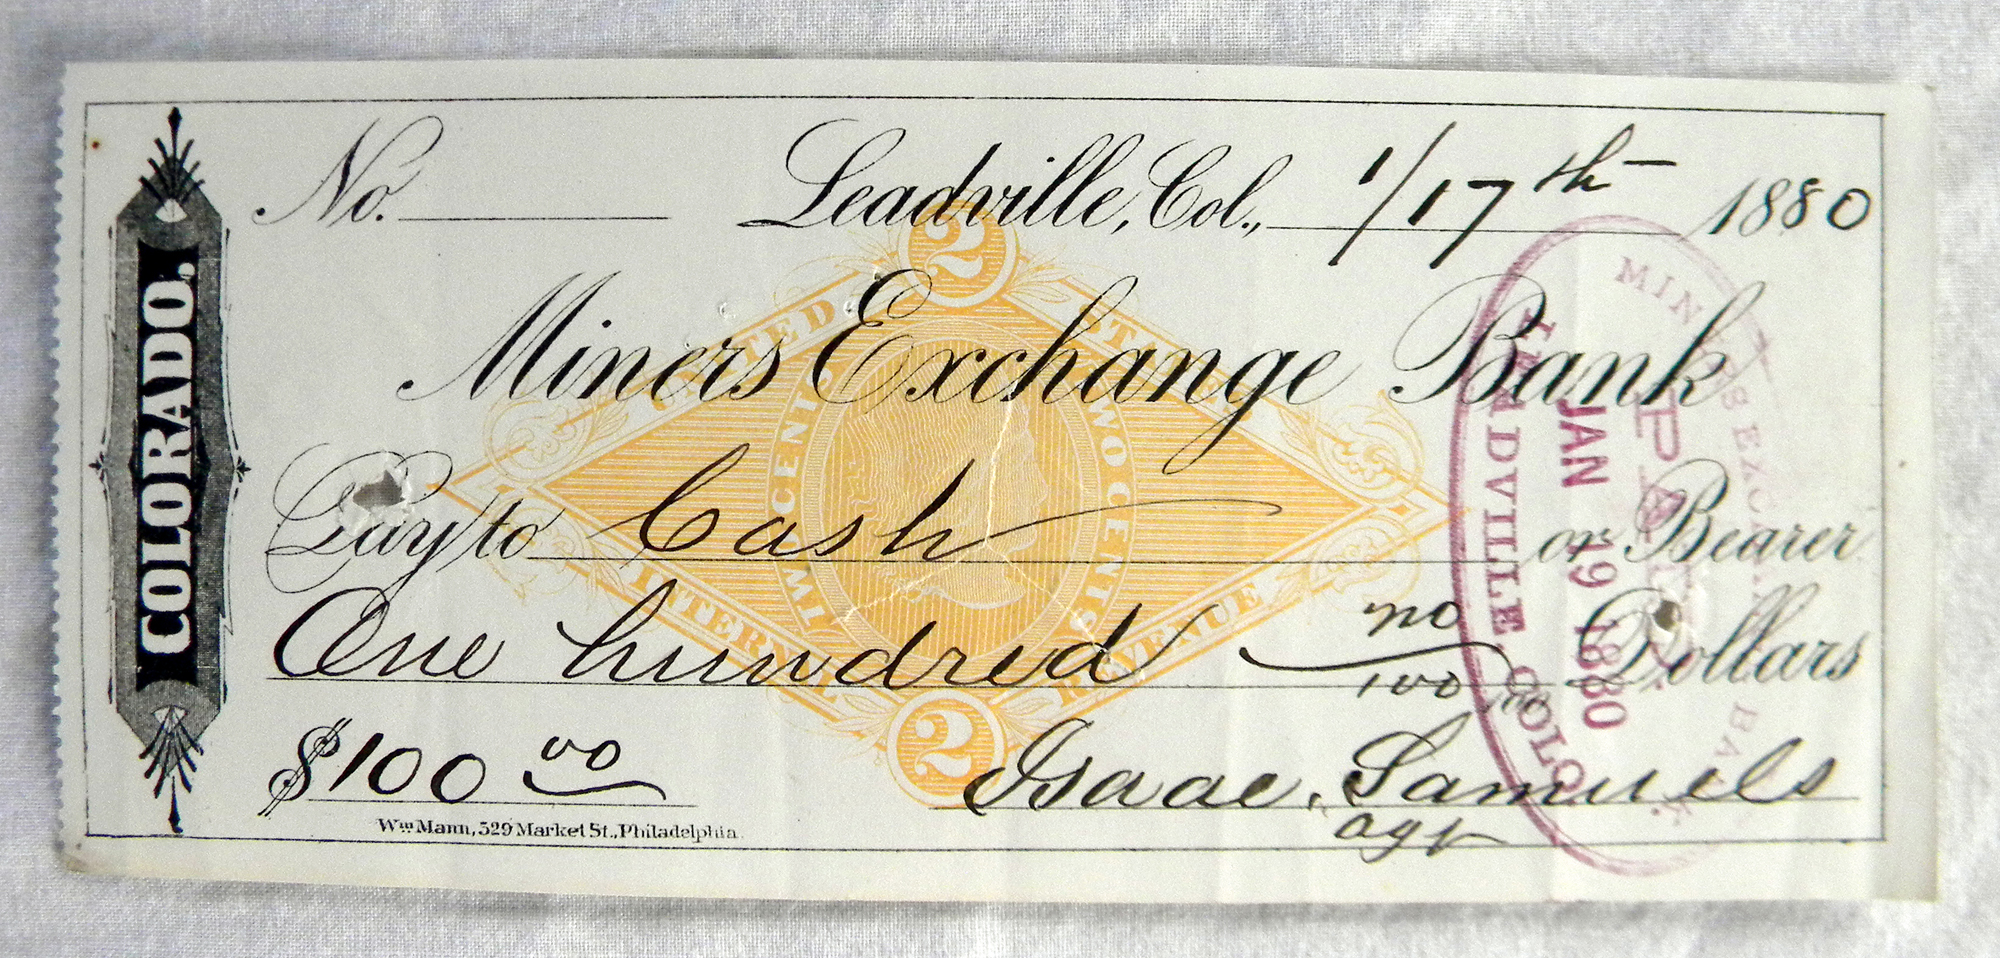 COLORADO.
No. Leadville, Col., 1/17th 1880
UNITED STATES
2
Miners Exchange Bank
TWO CENTS TWO CENTS
Pay to Cash or Bearer
One hundred no/100 Dollars
INTERNAL REVENUE
2
$100 00 Isaac Samuels
agt
Wm Mann, 529 Market St., Philadelphia.
MINERS EXCHANGE BANK.
PAID
JAN 19 1880
LEADVILLE, COLO